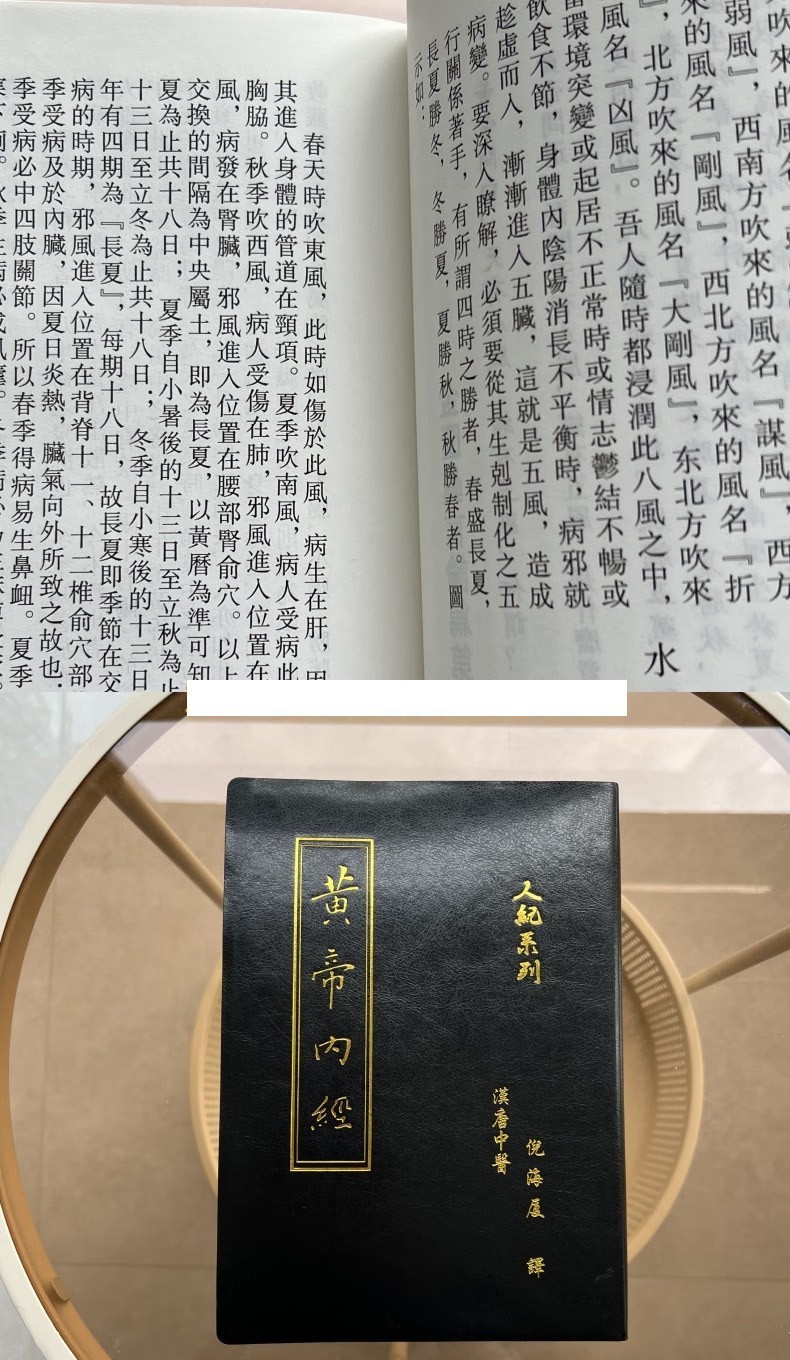 吹來的風名『
弱風』，西南方吹來的風名『謀風』，西方
來的風名『剛風』，西北方吹來的風名『折
』，北方吹來的風名『大剛風』，东北方吹來
風名『凶風』。吾人隨時都浸潤此八風之中，
當環境突變或起居不正常時或情志鬱結不暢或
飲食不節，身體內陰陽消長不平衡時，病邪就
趁虛而人，漸漸進入五臟，這就是五風，造成
病變。要深入瞭解，必須要從其生剋制化之五
行關係著手，有所謂四時之勝者，春盛長夏，
長夏勝冬，冬勝夏，夏勝秋，秋勝春者。圖
示如：
水
春天時吹東風，此時如傷於此風，病生在肝，因
其進入身體的管道在頸項。夏季吹南風，病人受病此
胸脇。秋季吹西風，病人受傷在肺，邪風進入位置在
風，病發在腎臟，邪風進入位置在腰部腎俞穴。以上
交換的間隔為中央屬土，即為長夏，以黃曆為準可知
夏為止共十八日；夏季自小暑後的十三日至立秋為止
十三日至立冬為止共十八日；冬季自小寒後的十三日
年有四期為『長夏』，每期十八日，故長夏即季節在交
病的時期，邪風進入位置在背脊十一、十二椎俞穴部
季受病及於內臟，因夏日炎熱，臟氣向外所致之故也．
季受病必中四肢關節。所以春季得病易生鼻衄。夏季
人紀系列
倪海厦 譯
漢唐中醫
黃帝內經